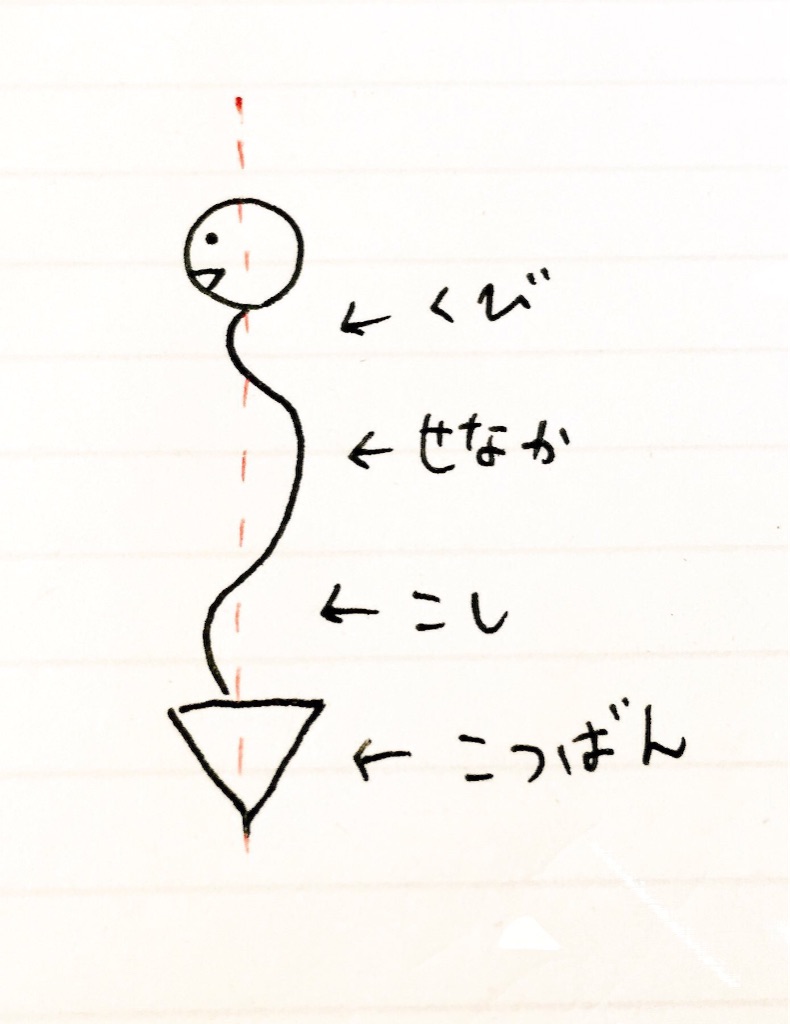 ← くび
← せなか
← こし
← こつばん